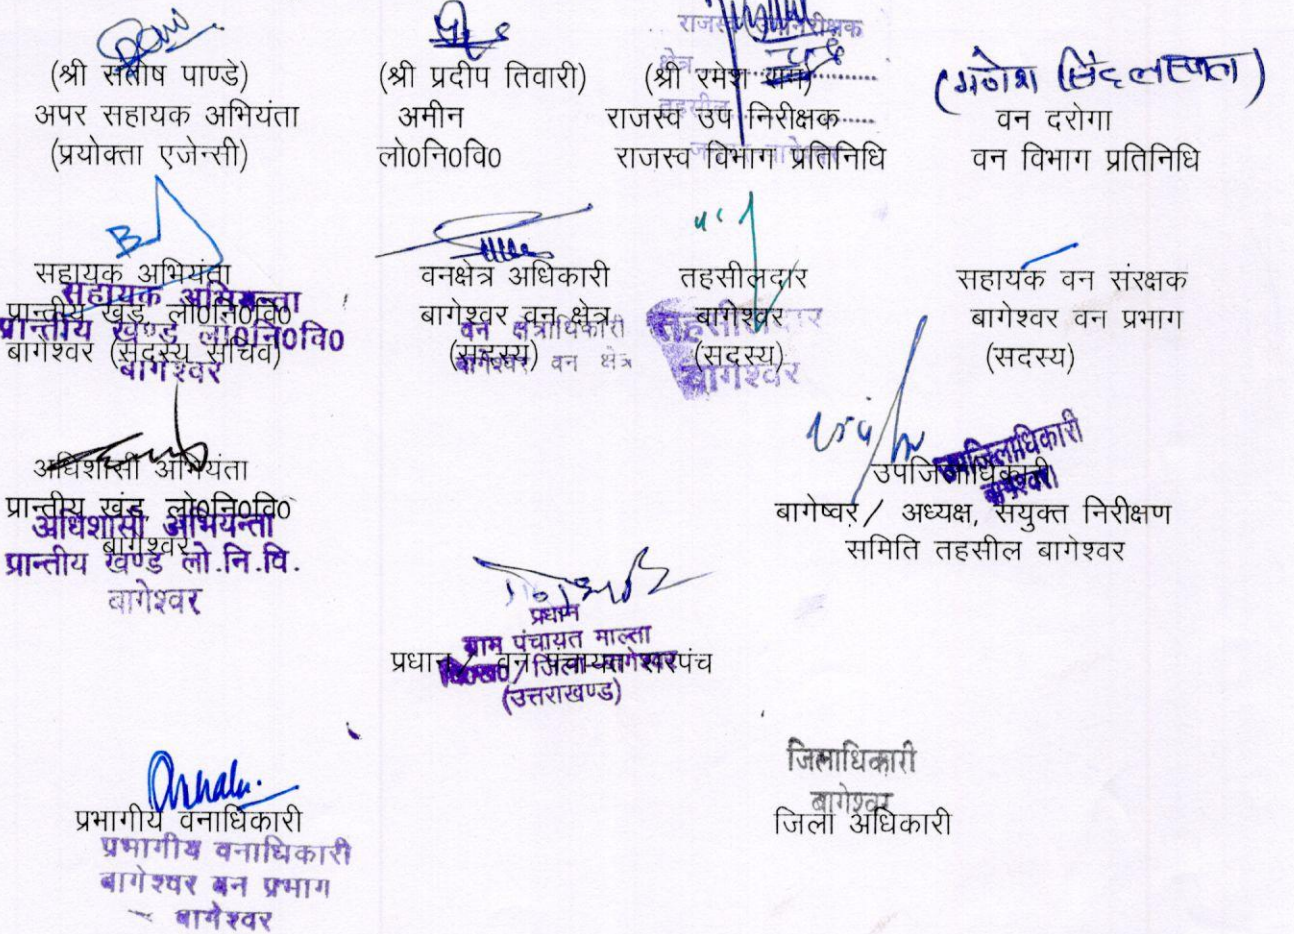 (श्री सतीष पाण्डे)
अपर सहायक अभियंता
(प्रयोक्ता एजेन्सी)
(श्री प्रदीप तिवारी)
अमीन
लो0नि0वि0
राजस्व उपनिरीक्षक
क्षेत्र
तहसील
(श्री रमेश राम)
राजस्व उप निरीक्षक
राजस्व विभाग प्रतिनिधि
(गणेश सिंह
वन दरोगा
वन विभाग प्रतिनिधि
सहायक अभियंता
प्रान्तीय खंड लो0नि0वि0
बागेश्वर (सदस्य सचिव)
सहायक अभियन्ता
प्रान्तीय खण्ड लो0नि0वि0
बागेश्वर
वनक्षेत्र अधिकारी
बागेश्वर वन क्षेत्र
(सदस्य)
वन क्षेत्राधिकारी
बागेश्वर वन क्षेत्र
तहसीलदार
बागेश्वर
(सदस्य)
तहसीलदार
बागेश्वर
सहायक वन संरक्षक
बागेश्वर वन प्रभाग
(सदस्य)
अधिशासी अभियंता
प्रान्तीय खंड लो0नि0वि0
बागेश्वर
अधिशासी अभियन्ता
प्रान्तीय खण्ड लो.नि.वि.
बागेश्वर
उपजिलाधिकारी
बागेष्वर/ अध्यक्ष, सयुक्त निरीक्षण
समिति तहसील बागेश्वर
उपजिलाधिकारी
बागेश्वर
प्रधान
ग्राम पंचायत माल्ता
वि0ख0/जिला-बागेश्वर
(उत्तराखण्ड)
प्रधान/ वन पंचायत सरपंच
प्रभागीय वनाधिकारी
प्रभागीय वनाधिकारी
बागेश्वर बन प्रभाग
बागेश्वर
जिलाधिकारी
बागेश्वर
जिला अधिकारी